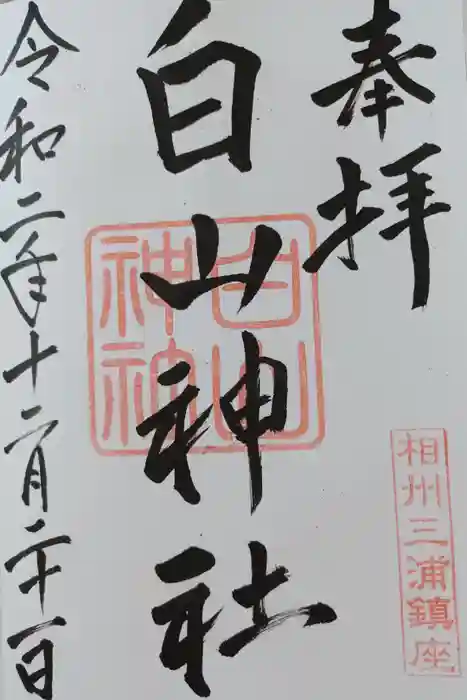 奉拝
相州三浦鎮座
白山神社
白山神社
令和二年十二月二十一日